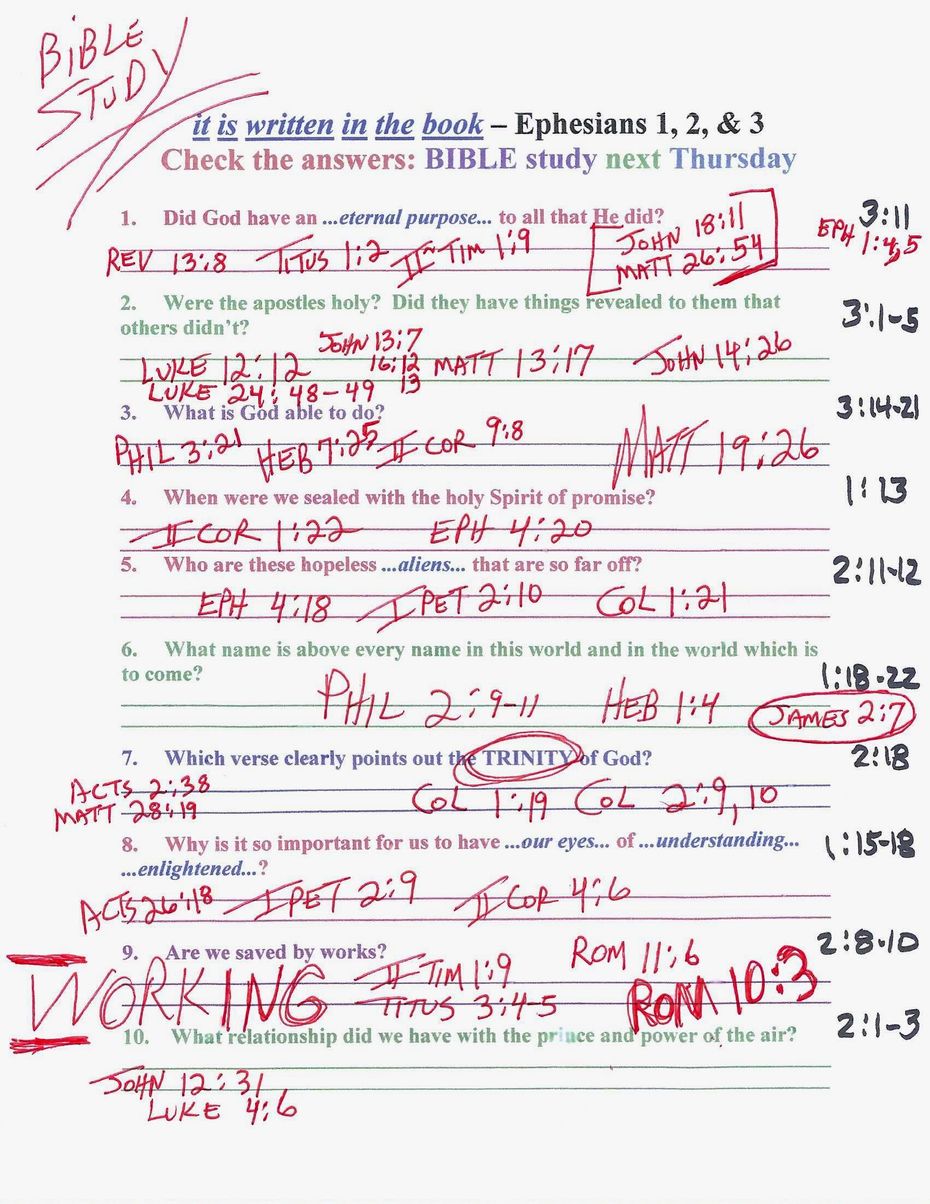 BiBLE
STUDY
it is written in the book – Ephesians 1, 2, & 3
Check the answers: BIBLE study next Thursday
1. Did God have an ...eternal purpose... to all that He did?
3:11
EPH 1:4,5
REV 13:8 TITUS 1:2 II TIM 1:9
JOHN 18:11
MATT 26:54
2. Were the apostles holy? Did they have things revealed to them that
others didn't?
3:1-5
JOHN 13:7
16:12
13
LUKE 12:12 MATT 13:17 JOHN 14:26
LUKE 24:48-49
3. What is God able to do?
3:14-21
PHIL 3:21 HEB 7:25 II COR 9:8 MATT 19:26
4. When were we sealed with the holy Spirit of promise?
1:13
II COR 1:22 EPH 4:20
5. Who are these hopeless ...aliens... that are so far off?
2:11-12
EPH 4:18 I PET 2:10 COL 1:21
6. What name is above every name in this world and in the world which is
to come?
1:18-22
PHIL 2:9-11 HEB 1:4 JAMES 2:7
7. Which verse clearly points out the TRINITY of God?
2:18
ACTS 2:38
MATT 28:19
COL 1:19 COL 2:9,10
8. Why is it so important for us to have ...our eyes... of ...understanding...
...enlightened...?
1:15-18
ACTS 26:18 I PET 2:9 II COR 4:6
9. Are we saved by works?
2:8-10
WORKING
II TIM 1:9 ROM 11:6
TITUS 3:4-5 ROM 10:3
10. What relationship did we have with the prince and power of the air?
2:1-3
JOHN 12:31
LUKE 4:6